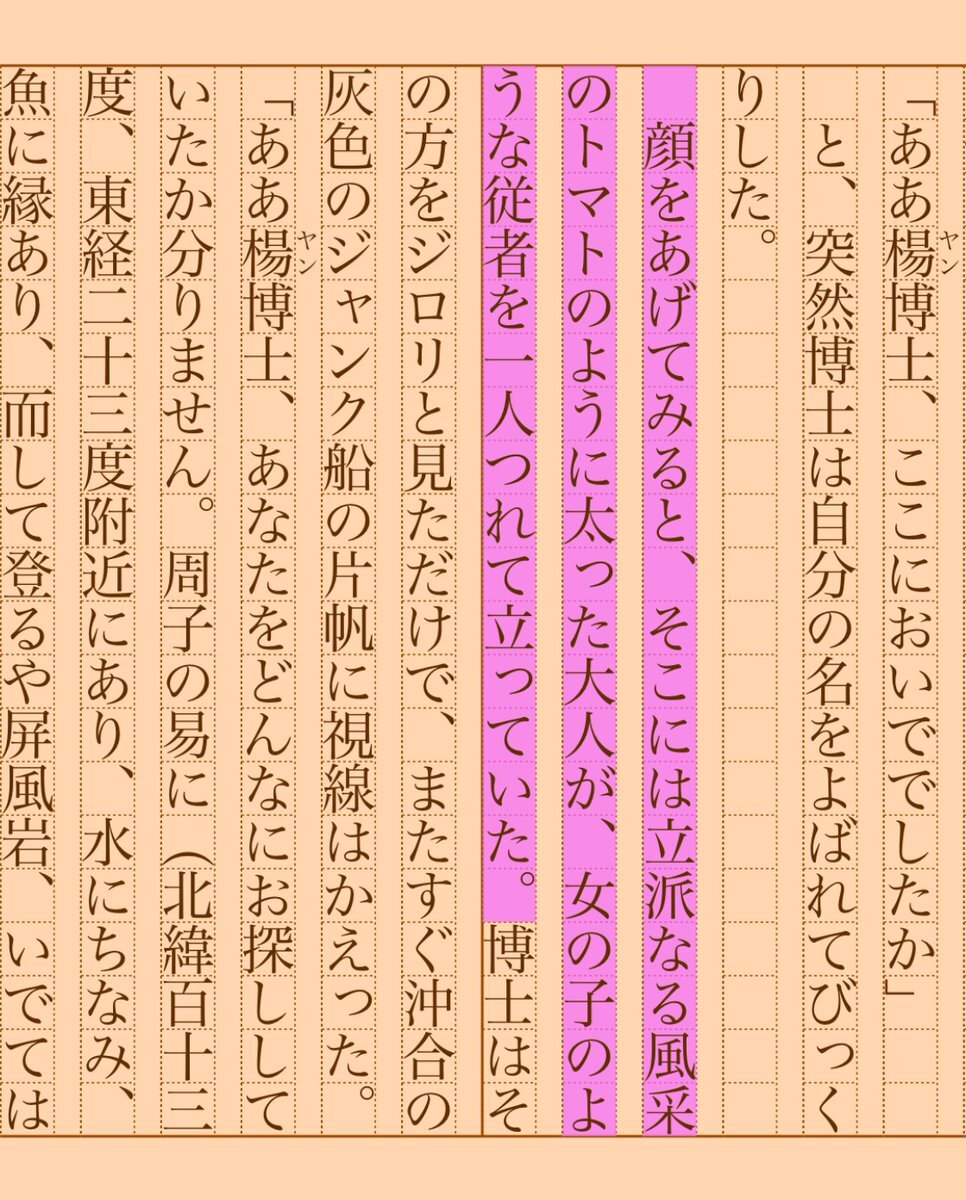 「ああ楊博士、ここにおいででしたか」
　と、突然博士は自分の名をよばれてびっく
りした。
　顔をあげてみると、そこには立派なる風采
のトマトのように太った大人が、女の子のよ
うな従者を一人つれて立っていた。博士はそ
の方をジロリと見ただけで、またすぐ沖合の
灰色のジャンク船の片帆に視線はかえった。
「ああ楊博士、あなたをどんなにお探しして
いたか分りません。周子の易に（北緯百十三
度、東経二十三度附近にあり、水にちなみ、
魚に縁あり、而して登るや屏風岩、いでては
ヤン
ヤン